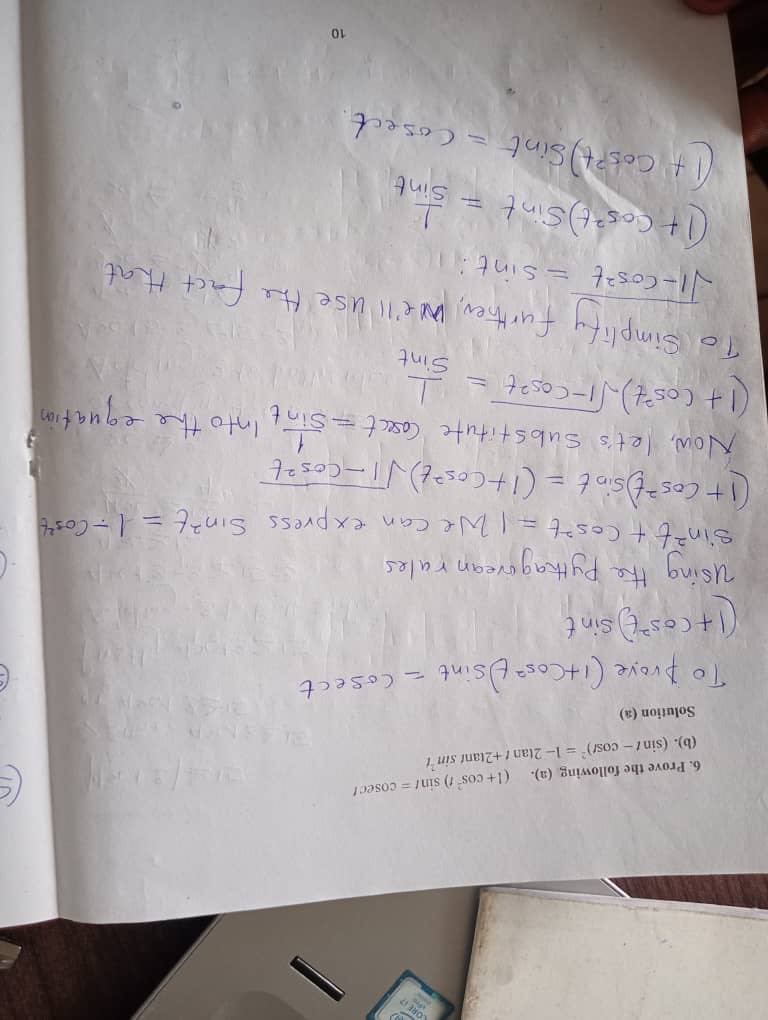 CORE i7
6. Prove the following (a). (1+ cos² t) sint = cosect
(b). (sin t – cost)² = 1– 2tan t +2tant sin²t
Solution (a)
To prove (1+Cos²t)Sint = Cosect
(1+cos²t) sint
Using the Pythagorean rules
Sin²t + Cos²t = 1 We can express Sin²t = 1-Cos²t
(1+ Cos²t)sint = (1+Cos²t) √1-Cos²t
Now, let's Substitute Cosect = 1/Sint Into the equation
(1+ Cos²t)√1-Cos²t = 1/Sint
To Simplify further, We'll use the fact that
√1-Cos²t = Sint:
(1+ Cos²t) Sint = 1/Sint
(1+ Cos²t) Sint = Cosect.
10